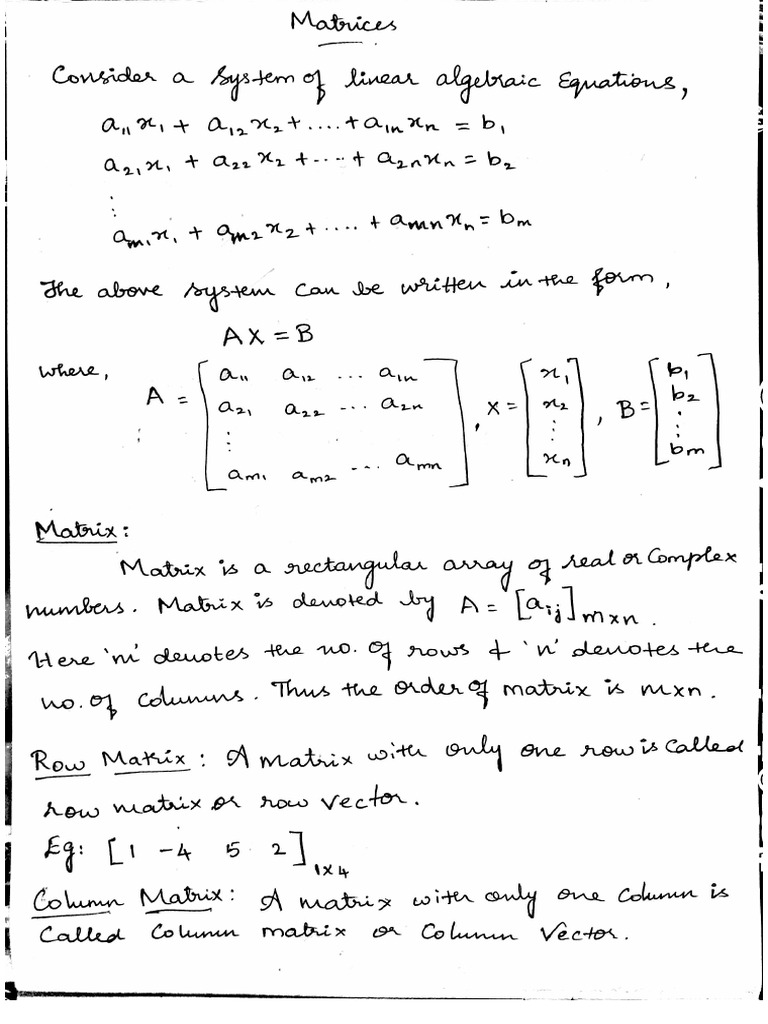 Matrices
Consider a system of linear algebraic Equations,
a₁₁x₁ + a₁₂x₂ + .... + a₁ₙxₙ = b₁
a₂₁x₁ + a₂₂x₂ + .... + a₂ₙxₙ = b₂
⋮
aₘ₁x₁ + aₘ₂x₂ + .... + aₘₙxₙ = bₘ
The above system can be written in the form,
AX = B
where, A = [a₁₁ a₁₂ ... a₁ₙ; a₂₁ a₂₂ ... a₂ₙ; ⋮ aₘ₁ aₘ₂ ... aₘₙ], X = [x₁ x₂ ⋮ xₙ], B = [b₁ b₂ ⋮ bₘ]
Matrix:
Matrix is a rectangular array of real or Complex
numbers. Matrix is denoted by A = [aᵢⱼ]ₘₓₙ.
Here 'm' denotes the no. of rows & 'n' denotes the
no. of columns. Thus the order of matrix is mxn.
Row Matrix: A matrix with only one row is called
row matrix or row vector.
Eg: [1 -4 5 2]₁ₓ₄
Column Matrix: A matrix with only one Column is
Called Column matrix or Column Vector.